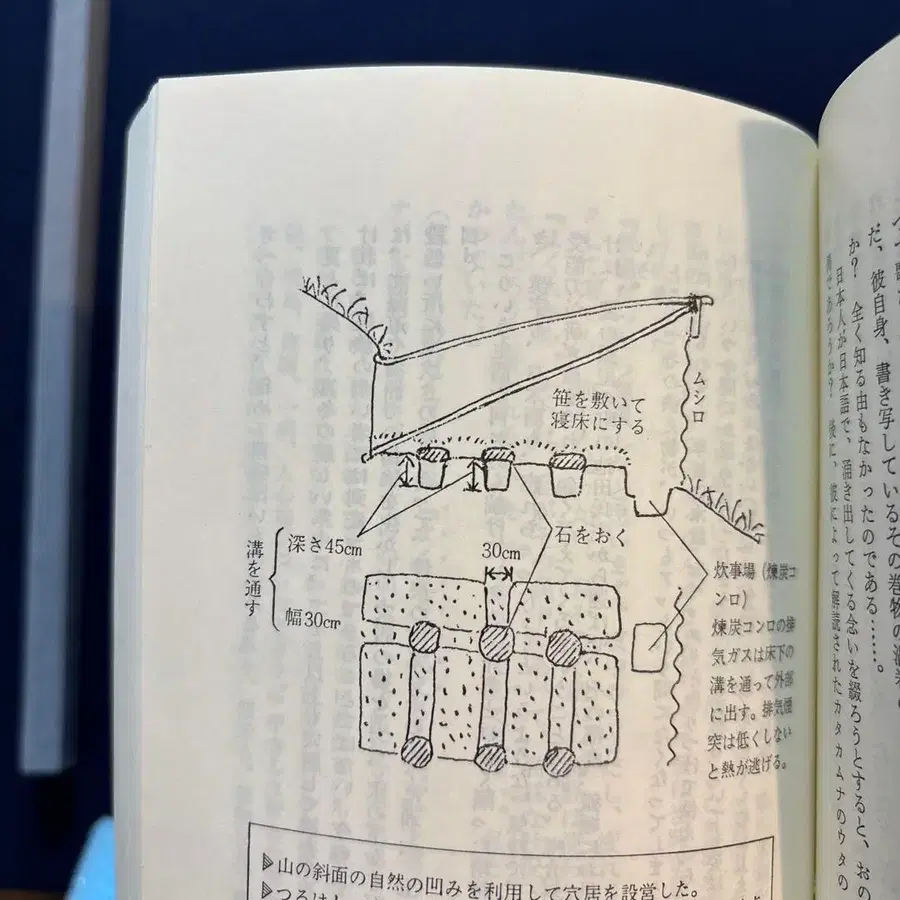 笹を敷いて
寝床にする
ムシロ
溝を通す
深さ45cm
幅30cm
30cm
石をおく
炊事場（煉炭コ
ンロ）
煉炭コンロの排
気ガスは床下の
溝を通って外部
に出す。排気煙
突は低くしない
と熱が逃げる。
山の斜面の自然の凹みを利用して穴居を設営した。
だ、彼自身、書き写しているその巻物の
か？　全く知る由もなかったのである……。
日本人が日本語で、涌き出してくる念いを綴ろうとすると、おの
彼によって解読されたカタカムナのウタの